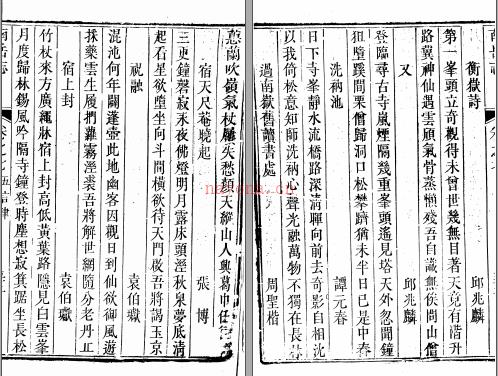 衡嶽詩 邱兆麟
第一峯頭立奇觀得未曾世幾無目著天竟有堦升
路冀神仙遇雲頑氣骨蒸懶殘吾自識無俟問山僧
又 邱兆麟
登臨尋古寺嵐煙隔幾重峯頭遙見塔天外忽聞鐘
狙壁蹊間栗僧歸洞口松攀躋猶未半日已是中春
洗衲池 譚元春
日下寺峯靜水流橋路深清聊向前去奇影自相沈
以我倚松意知師洗衲心聲光融萬物不獨在長林
過南嶽舊讀書處 周聖楷
蕙蘭吹嶺氣杖屨失愁顏天縱山人興葛巾任
宿天尺菴曉起 張博
三更鐘聲寂永夜佛燈明月露牀頭溼秋泉夢底清
起看星欲墮坐向斗間橫欲待天門啟吾將謁玉京
祝融 袁伯嶽
混沌何年闢蓬壺此地幽客因觀日到仙欲御風遊
採藥雲生屨捫蘿霧溼裘吾將解世網隨分老丹丘
宿上封 袁伯嶽
竹杖來方廣繩牀宿上封高低黃葉路隱見白雲峯
月度歸林錫風吟隔寺鐘登時塵想寂箕踞坐長松
南岳志 五言律